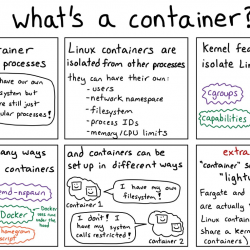 what's a container?
tainer
processes
have our own
system but
re still just
ular processes!
Linux containers are
isolated from other processes
they can have their own:
- users
- network namespace
- filesystem
- process IDs
- memory/CPU limits
Kernel fea
isolate Lin
cgroups
capabilities
any ways
containers
emd-nspawn
Docker
Docker
uses runc
under the
hood
homegrown
script
and containers can be
set up in different ways
I have my own
filesystem!
container 1
I don't! I
have my system
calls restricted!
container 2
extra
"container" s
"light
Fargate and
are actually
Linux contain
share a kerne
containers